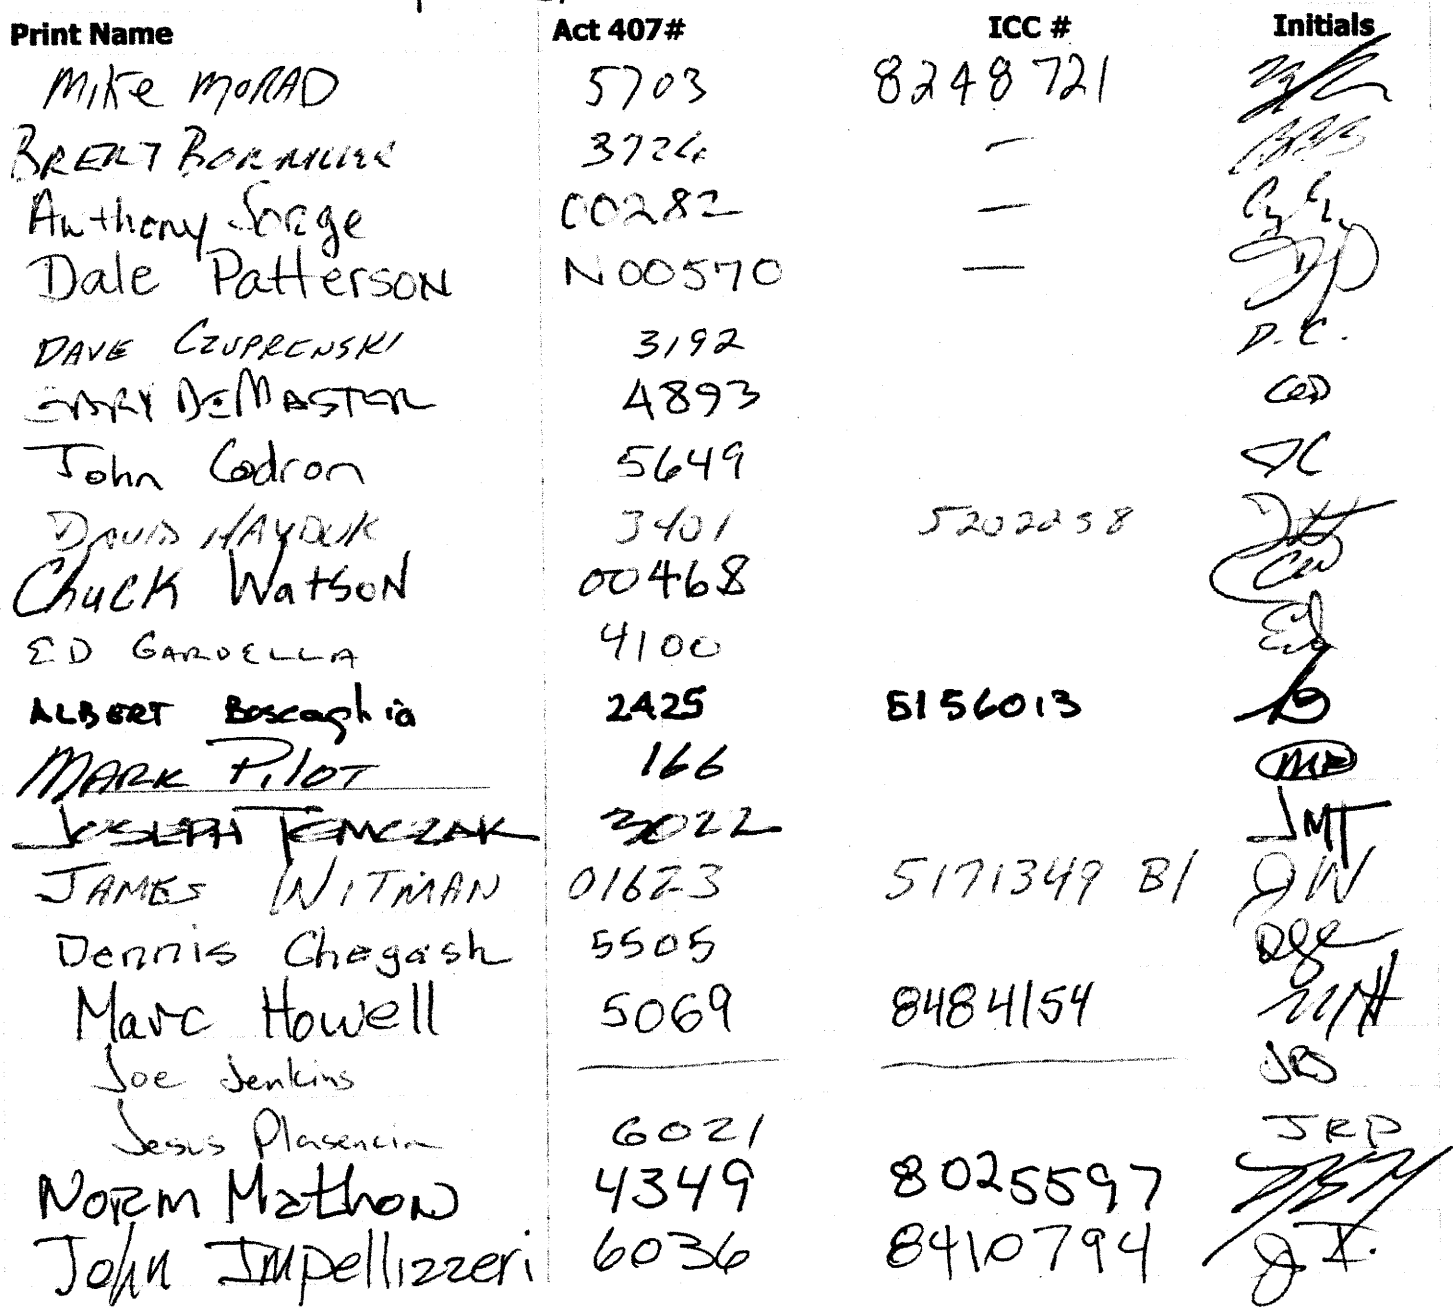 Print Name Act 407# ICC # Initials
Mike MORAD 5703 8248721
BRENT 3724 — BBB
Anthony Sorge 00282 —
Dale Patterson N00570 — DP
DAVE CZUPRENSKI 3192 D.C.
GARY DEMASTER 4893 GED
John Codron 5649 JC
DAVID HAYDUK 3401 5202258 DH
Chuck Watson 00468 CW
ED GARDELLA 4100 EG
ALBERT Boscaglia 2425 5156013
MARK PILOT 166 MP
JOSEPH TOMCZAK 3022 JMT
JAMES WITMAN 01623 5171349 B1 JW
Dennis Chegash 5505
Marc Howell 5069 8484154 MH
Joe Jenkins — — JRJ
Jesus Plasencia 6021 JRP
Norm Mathon 4349 8025597
John Impellizzeri 6036 8410794 J I.